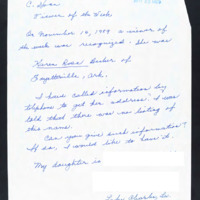 C. Span
Viewer of the Week,
On November 16, 1989 a viewer of
the week was recognized. She was
Karen Rose Barber of
Fayetteville, Ark.
I have called information by
telephone to get her address. I was
told that there was no listing of
this name.
Can you give such information?
If so, I would like to have it.
My daughter is